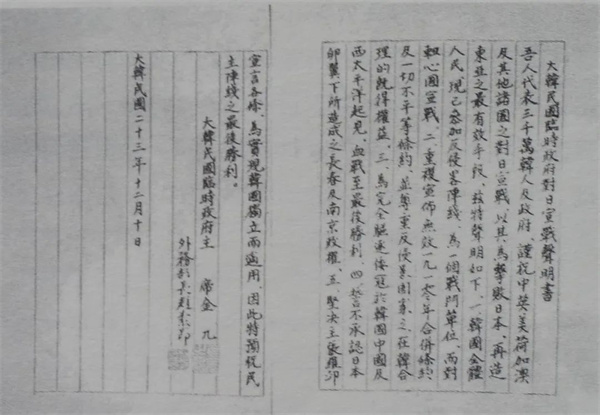 大韓民國臨時政府對日宣戰聲明書
吾人代表三千萬韓人及政府 謹祝中英美荷加澳
及其他諸國之對日宣戰、以其為擊敗日本、再造
東亞之最有效手段、玆特聲明如下、一韓國全體
人民、現已參加反侵畧陣綫、為一個戰鬥單位、而對
軸心國宣戰、二、重複宣佈無效一九一〇年合併條約
及一切不平等條約、並尊重反侵畧國家之在韓合
理的既得權益、三、為完全驅逐倭寇於韓國中國及
西太平洋起見、血戰至最後勝利、四、誓不承認日本
卵翼下所造成之長春及南京政權、五、堅決主張羅邱
宣言各條、為實現韓國獨立而適用、因此特預祝民
主陣綫之最後勝利。
大韓民國臨時政府主 席金 九
外務部長趙素卬
大韓民國二十三年十二月十日